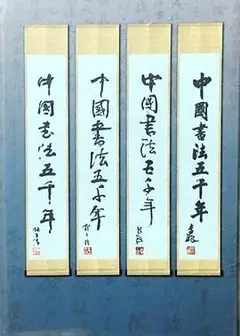 中國書法五千年
中国書法五千年
中國書法五千年
中国书法五千年